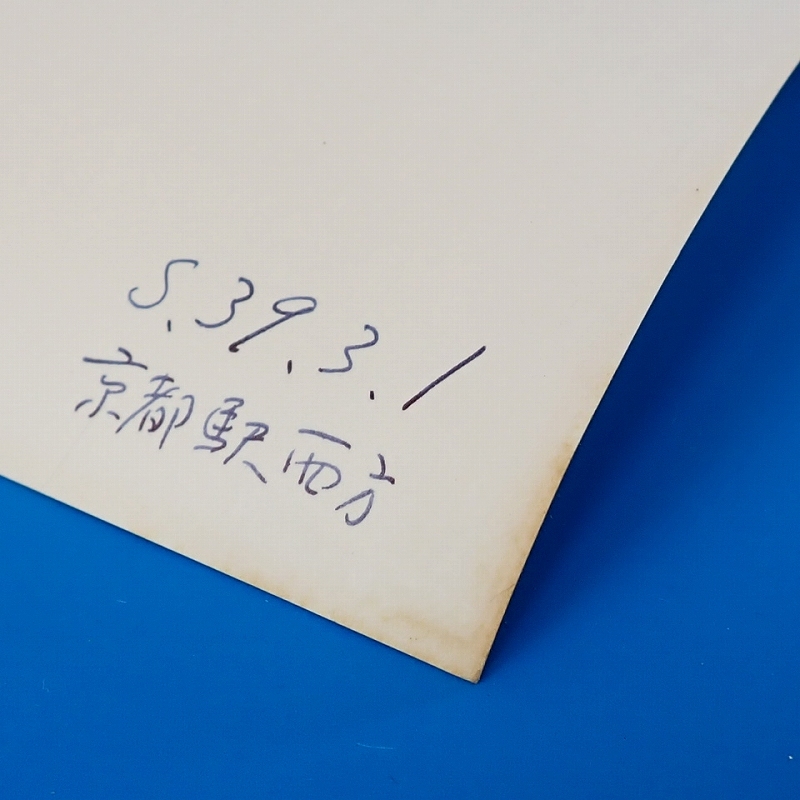 S.39.3.1
京都駅西方